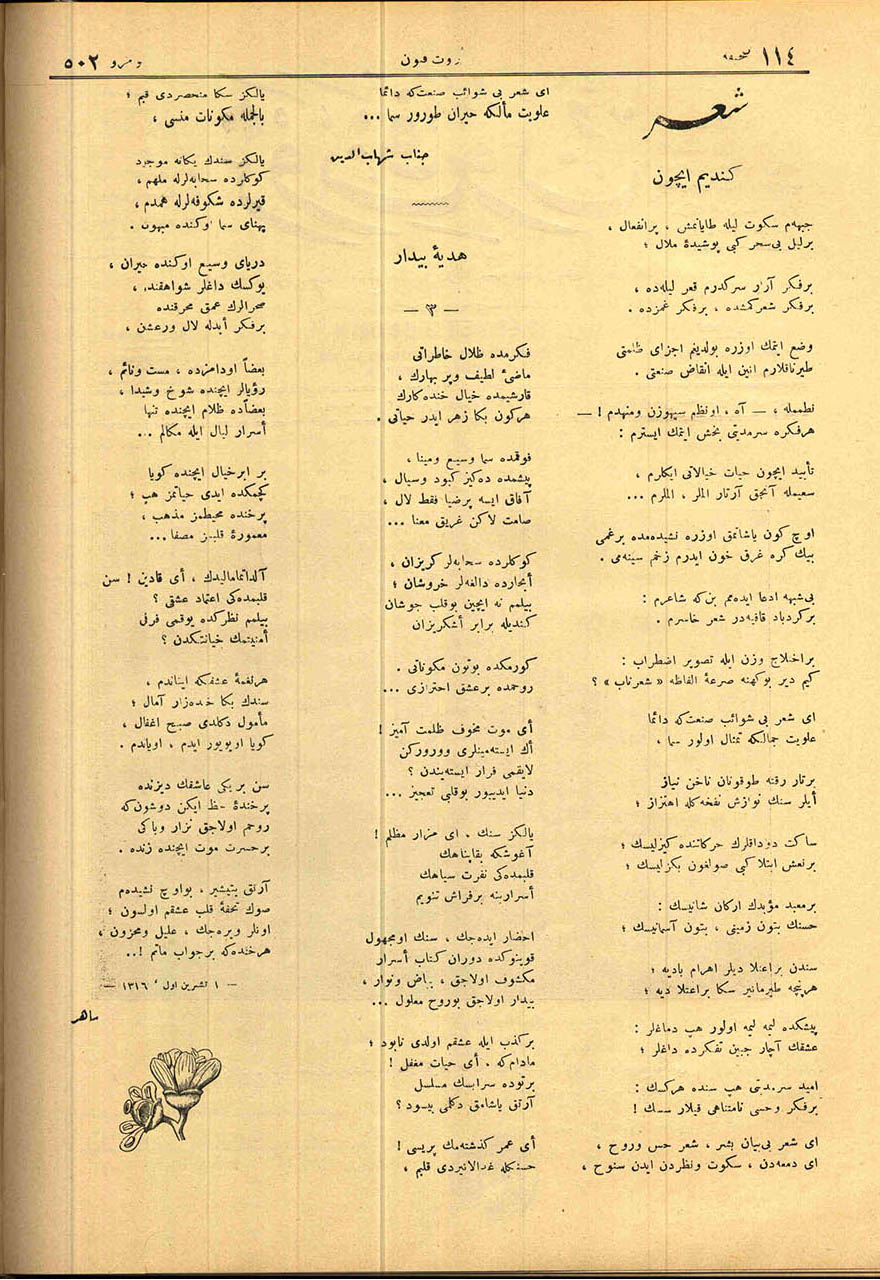 صحیفه ١١٤
ثروت فنون
نومرو ٥٠٢
شعر
کندیم ایچون
جبهه‌م سکوت لیله طایانمش ، پرانفعال ،
برلیل بی‌سحر کبی پوشیدۀ ملال ؛
برفکر آرار سرکدرم قعر لیله‌ده ،
برفکر شعرکمشده ، برفکر غمزده .
وضع ایتمك اوزره بولدیغم اجزای ظلمتی
طیرناقلارم انین ایله انقاض صنعتی .
نطمله ، — آه ، اونظم سیه‌وزن ومنهدم ! —
هرفکره سرمدیتی بخش ایتمك ایسترم :
تأبید ایچون حیات خیالاتی ایکلرم ،
سعیمله آنجق آرتار الملر ، الملرم ...
اوچ کون یاشاتمق اوزره نشیده‌مده برغمی
بیك کره غرق خون ایدرم زخم سینه‌می .
بی‌شبهه ادعا ایده‌مم بن‌که شاعرم :
برکردباد قافیه‌در شعر خاسرم .
براختلاج وزن ایله تصویر اضطراب :
کیم دیر بوکهنه صرعۀ الفاظه « شعرناب » ؟
ای شعر بی شوائب صنعت‌که دائما
علویت جمالکه تمثال اولور سما ،
برتار رقته طوقونان ناخن نیاز
أیلر سنك نوازش نفخه‌کله اهتزاز ؛
ساکت دوداقلرك حرکاتنده کیزلیسك ؛
برنعش ابتلا کبی صولغون بکزلیسك ؛
برمعبد مؤبدك ارکان شانیسك :
حسنك بتون زمینی ، بتون آسمانیسك ؛
سندن براعتلا دیلر اهرام بادیه ؛
هرپنچه طیرمانیر سکا براعتلا دیه ؛
پیشکده لیمه لیمه اولور هپ دماغلر :
عشقك آچار جبین تفکرده داغلر ؛
امید سرمدیتی هپ سنده هرکسك :
برفکر وحسی نامتناهی قیلار سسك !
ای شعر بی‌بیان بشر ، شعر حس وروح ،
ای دمعه‌دن ، سکوت ونظردن ایدن سنوح ،
ای شعر بی شوائب صنعت‌که دائما
علویت مآلکه حیران طورور سما ...
جناب شهاب‌الدین
هدیۀ بیدار
— ٣ —
فکرمده ظلال خاطراتی
ماضیٔ لطیف وپر بهارك ،
قارشیمده خیال خنده‌کارك
هرکون بکا زهر ایدر حیاتی .
فوقمده سما وسیع ومینا ،
پیشمده ده‌کیز کبود وسیال ،
آفاق ایسه پرضیا فقط لال ،
صامت لاکن غریق معنا ...
کوکلرده سحابه‌لر کریزان ،
أبحارده دالغه‌لر خروشان ؛
بیلمم نه ایچین بوقلب جوشان
کندیله برابر أشکریزان
کورمکده بوتون مکوناتی .
روحمده برعشق احترازی ...
أی موت مخوف ظلمت آمیز !
أك ایسته‌مینلری وورورکن
لایقمی فرار ایسته‌یندن ؟
دنیا ایدییور بوقلبی تعجیز ...
یالکز سنك ، ای مزار مظلم !
آغوشکه بقاپناهك
قلبمده‌کی نفرت سیاهك
أسراربنه برفراش تنویم
احضار ایده‌جك ، سنك اومجهول
قوینوکده دوران کتاب أسرار
مکشوف اولاجق ، بیاض ونوار ،
بیدار اولاجق بوروح معلول ...
برکذب ایله عشقم اولدی نابود ؛
مادام‌که ، أی حیات مغفل !
برتوده سرابسك مسلسل
آرتق یاشامق دکلمی بیسود ؟
أی عمر کذشته‌مك پریسی !
حسنکله غدالانیردی قلبم ،
یالکز سکا منحصردی قبم ؛
بالجمله مکونات منسی ،
یالکز سندك یکانه موجود
کوکلرده سحابه‌لرله ملهم ،
قیرلرده شکوفه‌لرله همدم ،
پهنای سما اوکنده مبهوت .
دریای وسیع اوکنده حیران ،
یوکسك داغلر شواهقنده ،
صحرالرك عمق محرقنده
برفکر أبدله لال ورعشن ،
بعضاً اودامزده ، مست ونائم ،
رؤیالر ایچنده شوخ وشیدا ،
بعضاًده ظلام ایچنده تنها
أسرار لیال ایله مکالم ...
بر ابرخیال ایچنده کویا
کچمکده ایدی حیاتمز هپ ؛
پرخنده محیطمز مذهب ،
معمورۀ قلبمز مصفا ...
آلداتمامالیدك ، أی قادین ! سن
قلبمده‌کی اعتماد عشقی ؟
بیلمم نظرکده یوقمی فرقی
أمنیتمك خیانتکدن ؟
هرنغمۀ عشقکه ایناندم ،
سندك بکا خنده‌زار آمال ؛
مأمول دکلدی صبح اغفال ،
کویا اویویور ایدم ، اویاندم .
سن بر یکی عاشقك دیزنده
پرخندۀ حظ ایکن دوشون‌که
روحم اولاجق نزار وباکی
برحسرت موت ایچنده زنده .
آرتق یتیشیر ، بواوچ نشیده‌م
صوك تحفۀ قلب عشقم اولسون ؛
اونلر ویره‌جك ، علیل ومحزون ،
هرخنده‌که برجواب ماتم !..
— ١ تشرین اول ، ١٣١٦ —
ساهر